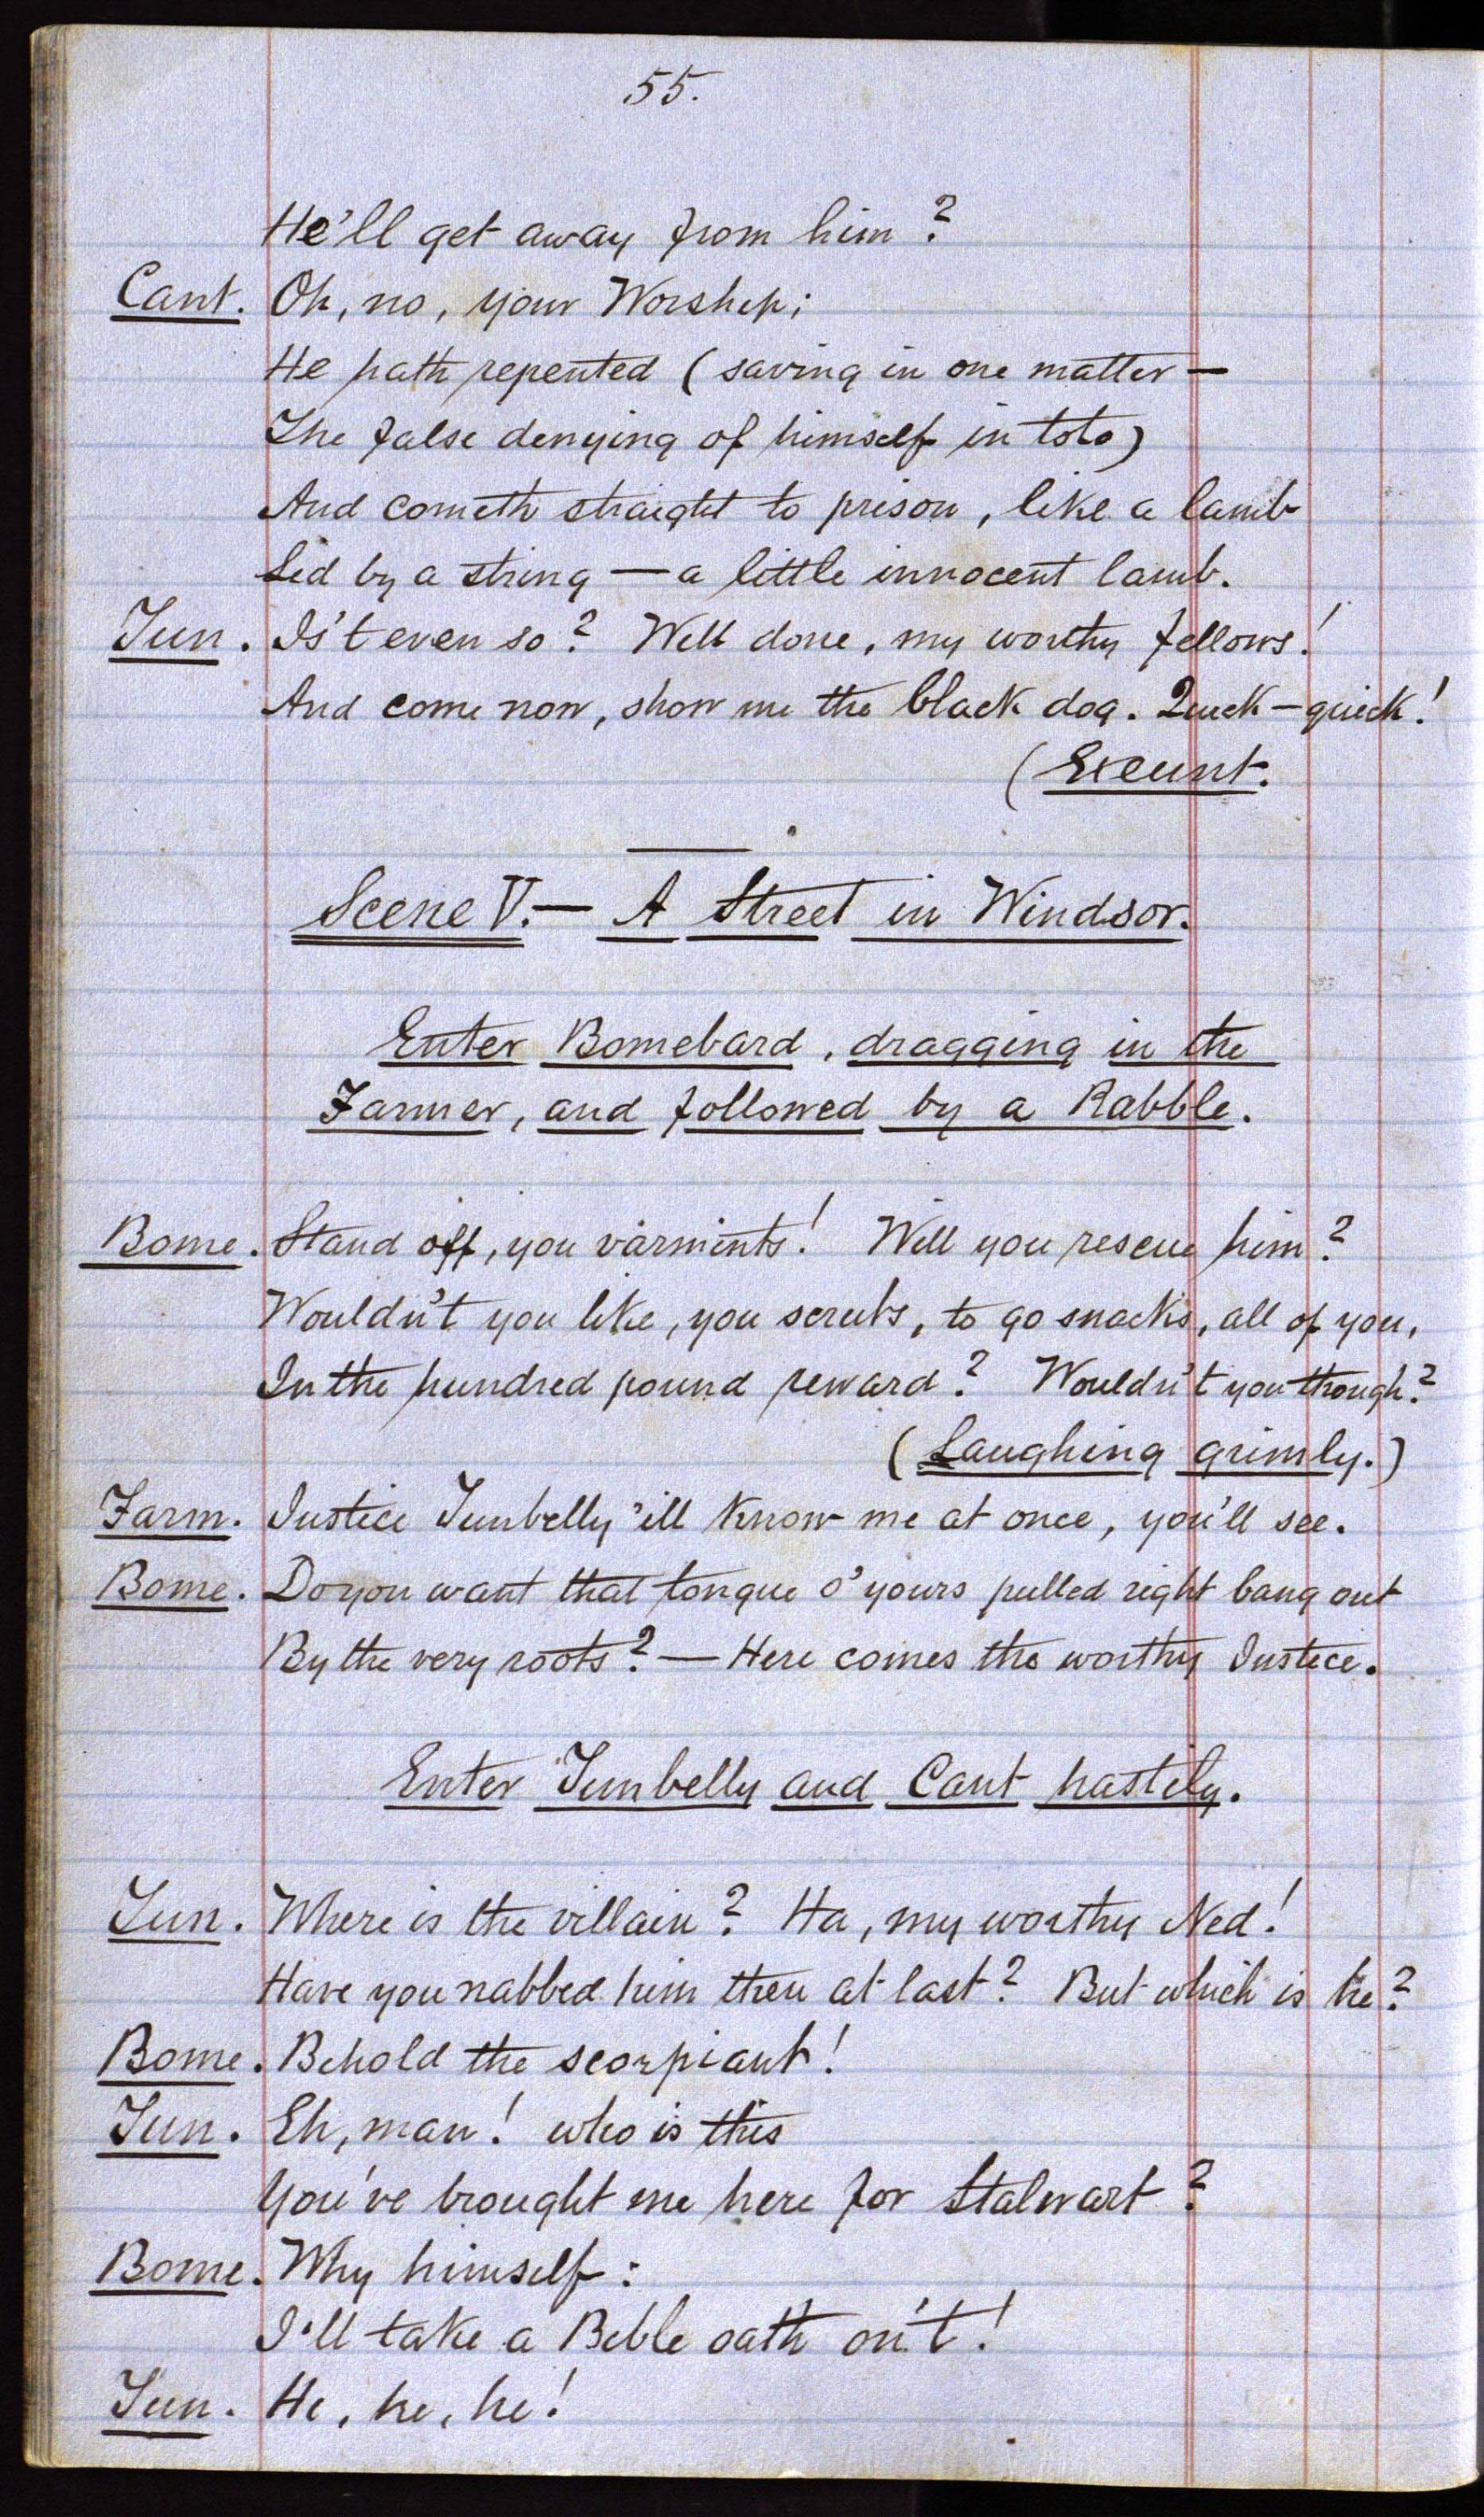 55.
He'll get away from him?
Cant. Oh, no, your Worship;
He hath repented (saving in one matter—
The false denying of himself in toto)
And cometh straight to prison, like a lamb
Led by a string — a little innocent lamb.
Tun. Is't even so? Well done, my worthy fellows!
And come now, show me the black dog. Quick — quick!
(Exeunt.
Scene V. — A Street in Windsor.
Enter Bomebard, dragging in the
Farmer, and followed by a Rabble.
Bome. Stand off, you varments! Will you rescue him?
Wouldn't you like, you scrubs, to go snacks, all of you,
In the hundred pound reward? Wouldn't you though?
(Laughing grimly.)
Farm. Justice Tunbelly 'ill know me at once, you'll see.
Bome. Do you want that tongue o' yours pulled right bang out
By the very roots? — Here comes the worthy Justice.
Enter Tunbelly and Cant hastily.
Tun. Where is the villain? Ha, my worthy Ned!
Have you nabbed him then at last? But which is he?
Bome. Behold the scorpiant!
Tun. Eh, man! who is this
You've brought me here for Stalwart?
Bome. Why himself:
I'll take a Bible oath on't!
Tun. He, he, he!